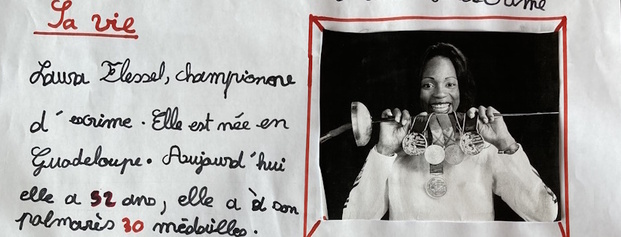 Sa vie
Laura Flessel, championne
d'escrime. Elle est née en
Guadeloupe. Aujourd'hui
elle a 52 ans, elle a à son
palmarès 30 médailles.